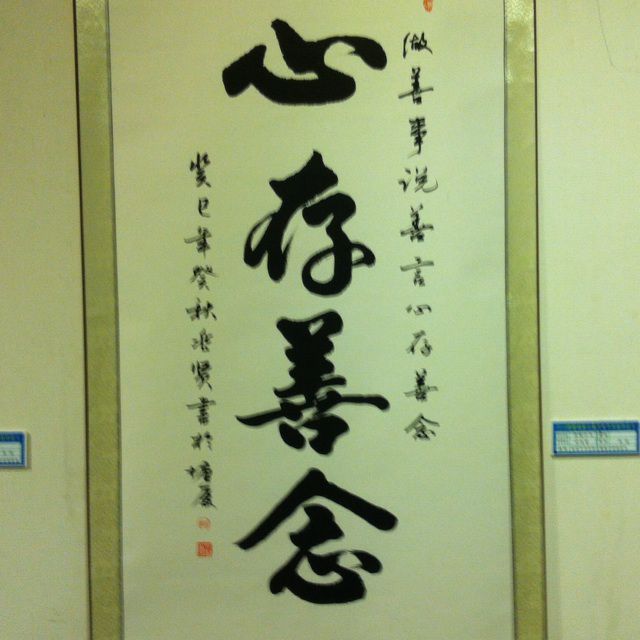 做善事说善言心存善念
心存善念
癸巳年癸秋兆贤书於